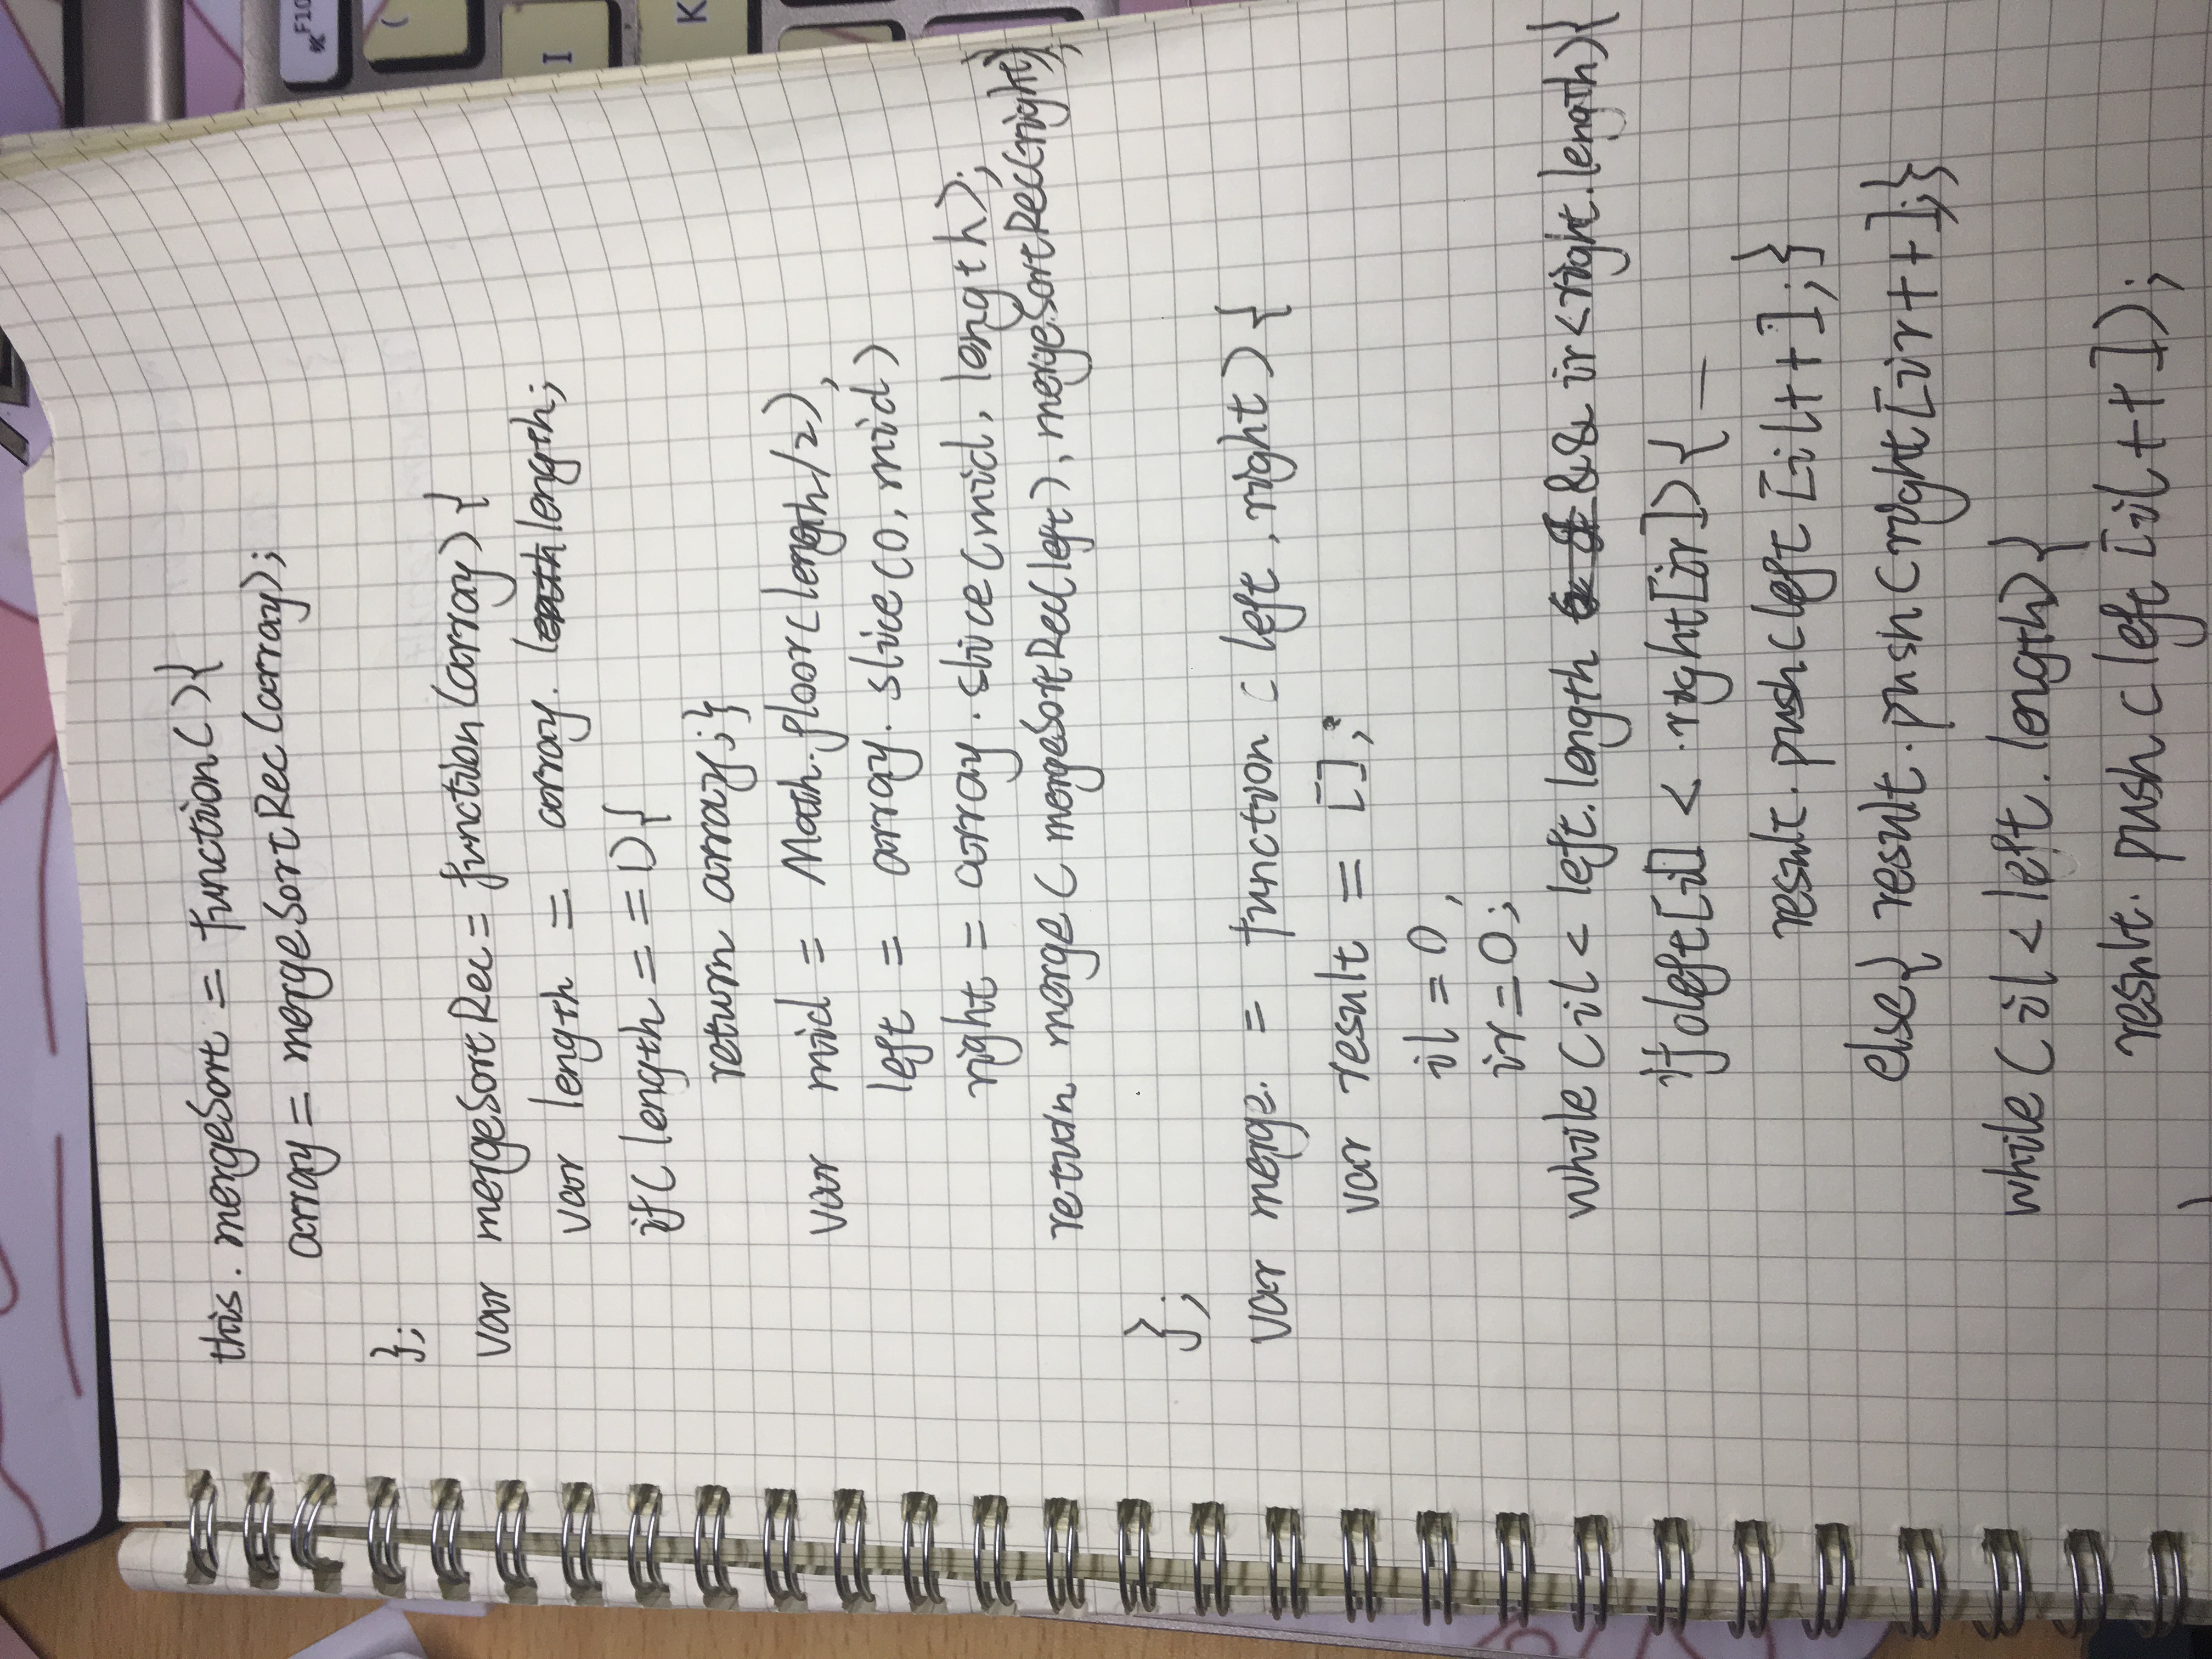 this. mergeSort = function(){
array = mergeSortRec(array);
};
var mergeSortRec = function(array){
var length = array. length;
if( length = = 1){
return array;}
var mid = Math.floor(length/2),
left = array. slice(0, mid)
right = array. slice(mid, length);
return merge( mergeSortRec(left), mergeSortRec(right);
};
var merge. = function ( left, right) {
var result = [];
il = 0,
ir = 0;
while (il < left.length && ir < right.length){
if(left[il] < right[ir]){
result. push(left [il++];}
else{ result. push(right[ir++];}
while (il < left. length){
result. push (left [il++]);
F10
(
I
K